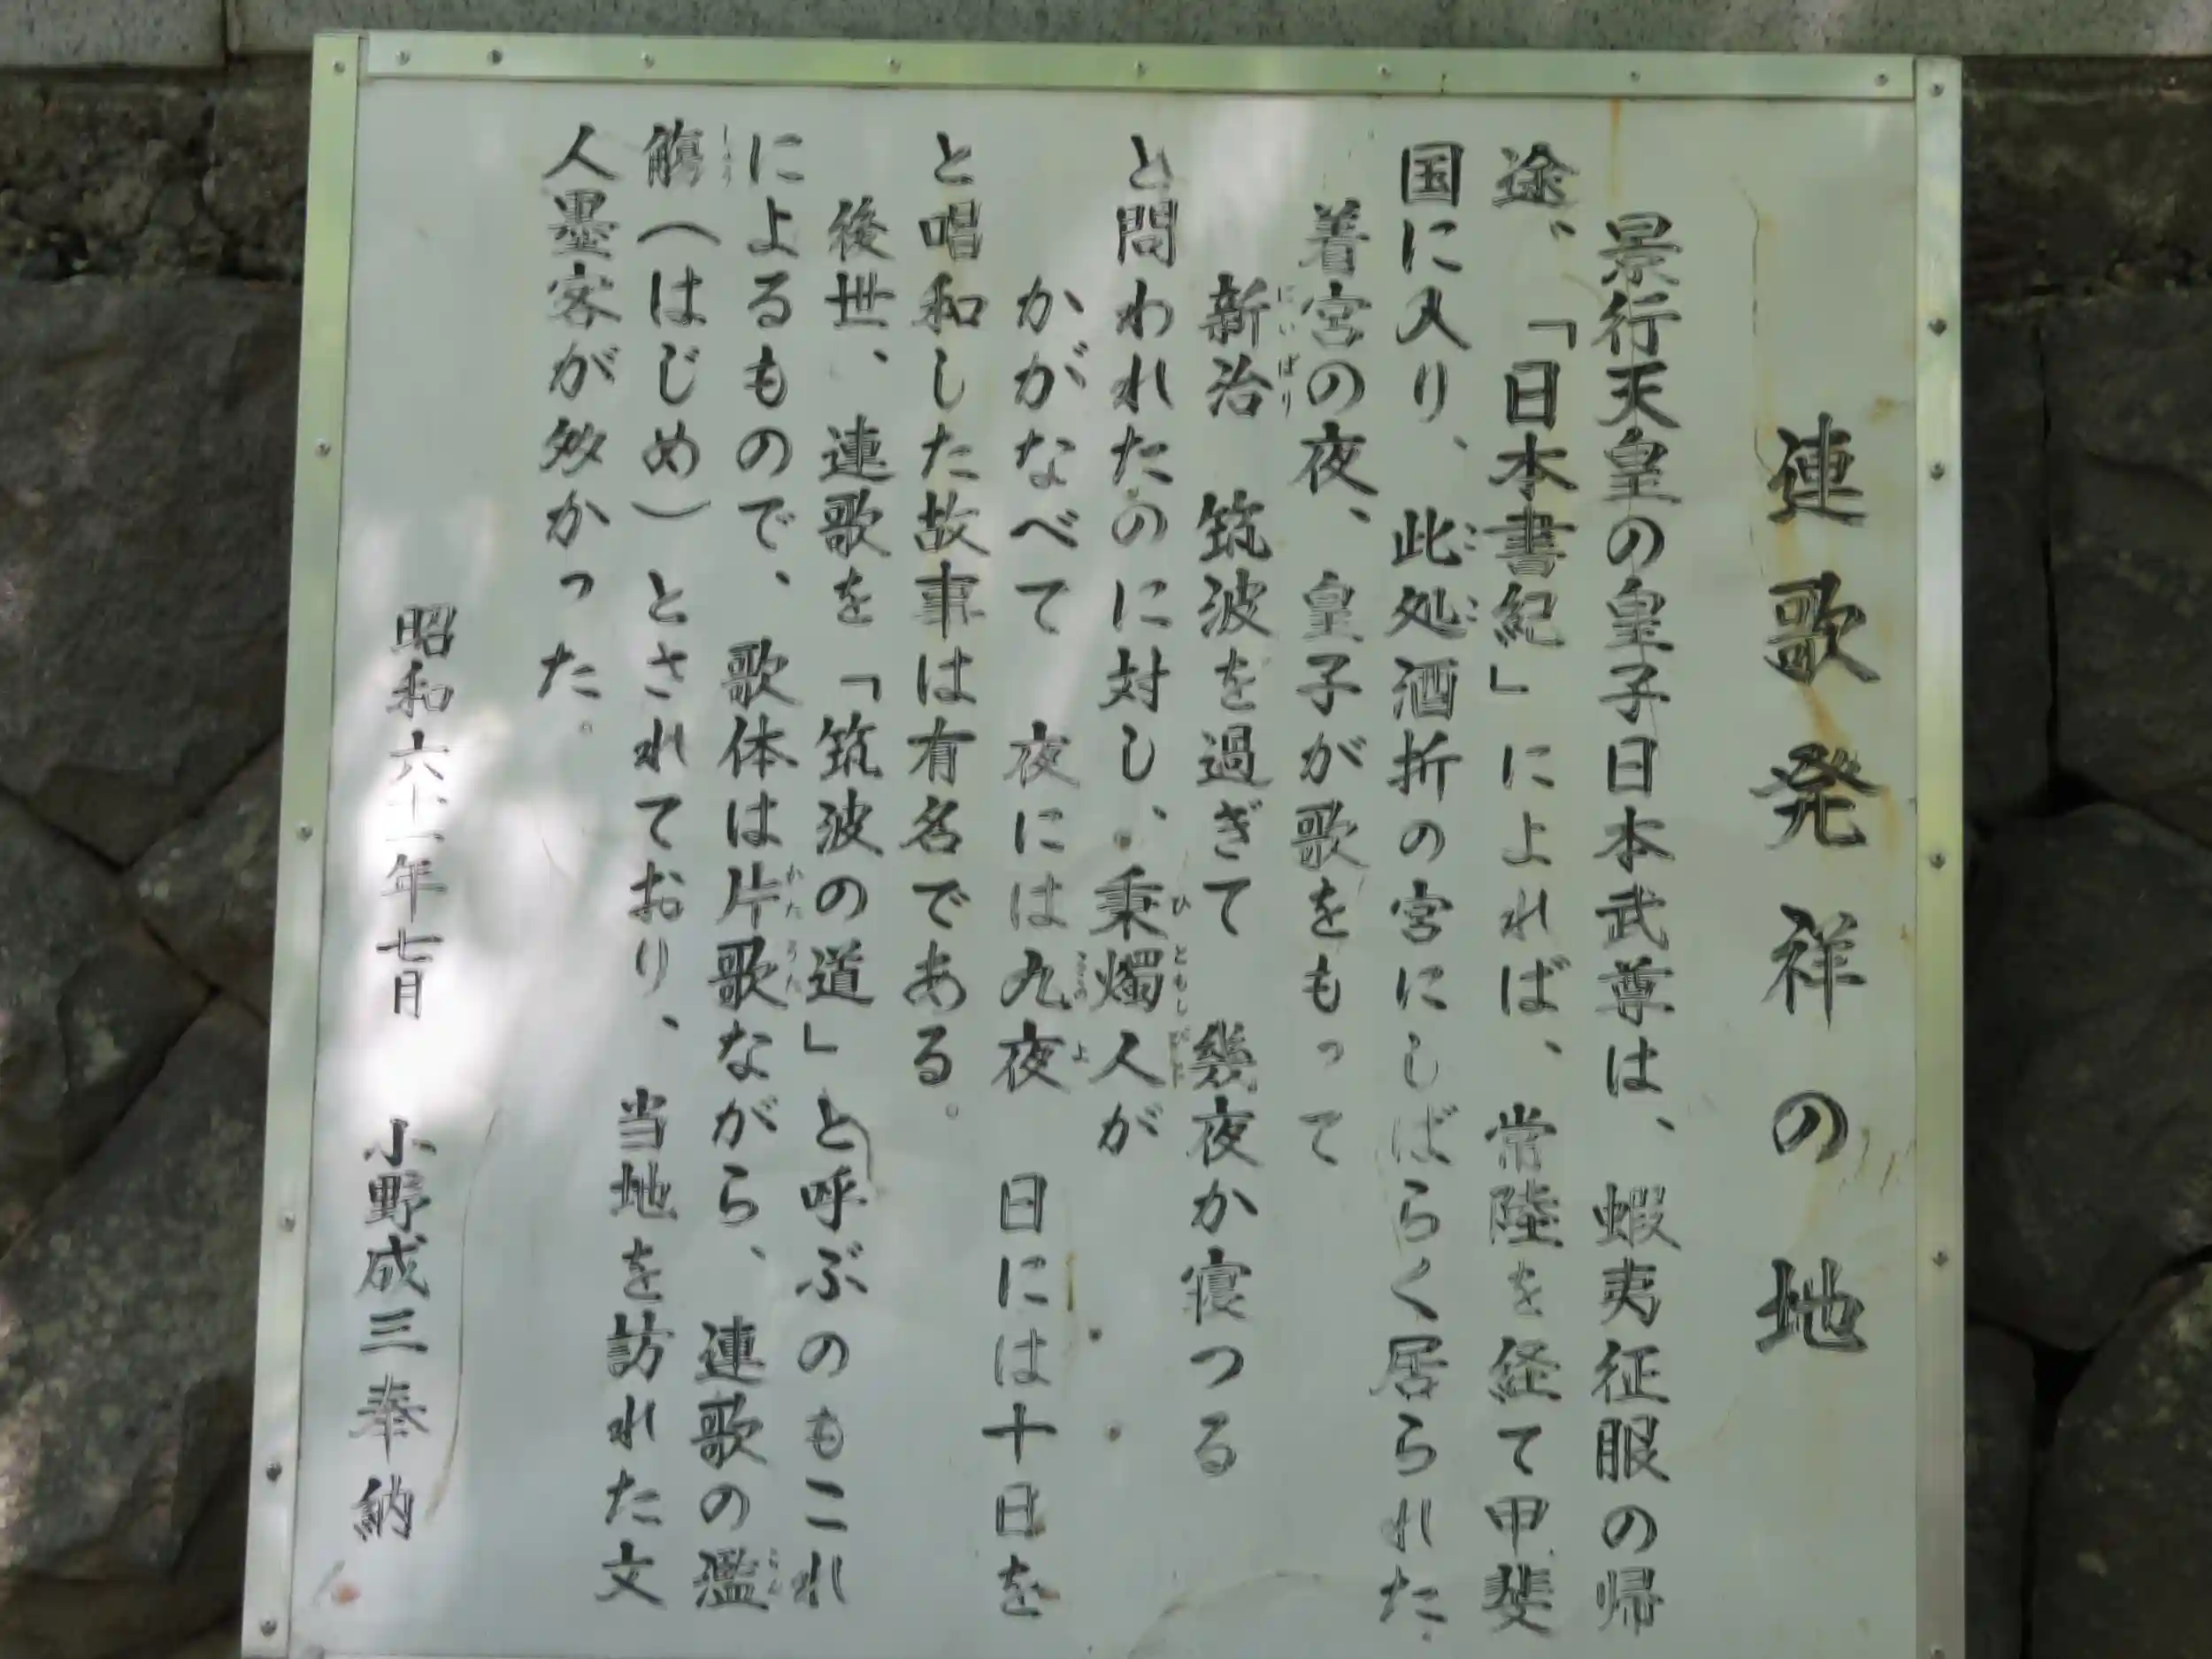 連歌発祥の地
景行天皇の皇子日本武尊は、蝦夷征服の帰
途、「日本書紀」によれば、常陸を経て甲斐
国に入り、此処酒折の宮にしばらく居られた。
着宮の夜、皇子が歌をもって
新治 筑波を過ぎて 幾夜か寝つる
と問われたのに対し、乗燭人が
かがなべて 夜には九夜 日には十日を
と唱和した故事は有名である。
後世、連歌を「筑波の道」と呼ぶのもこれ
によるもので、歌体は片歌ながら、連歌の濫
觴(はじめ)とされており、当地を訪れた文
人墨客が多かった。
昭和六十一年七月 小野成三奉納